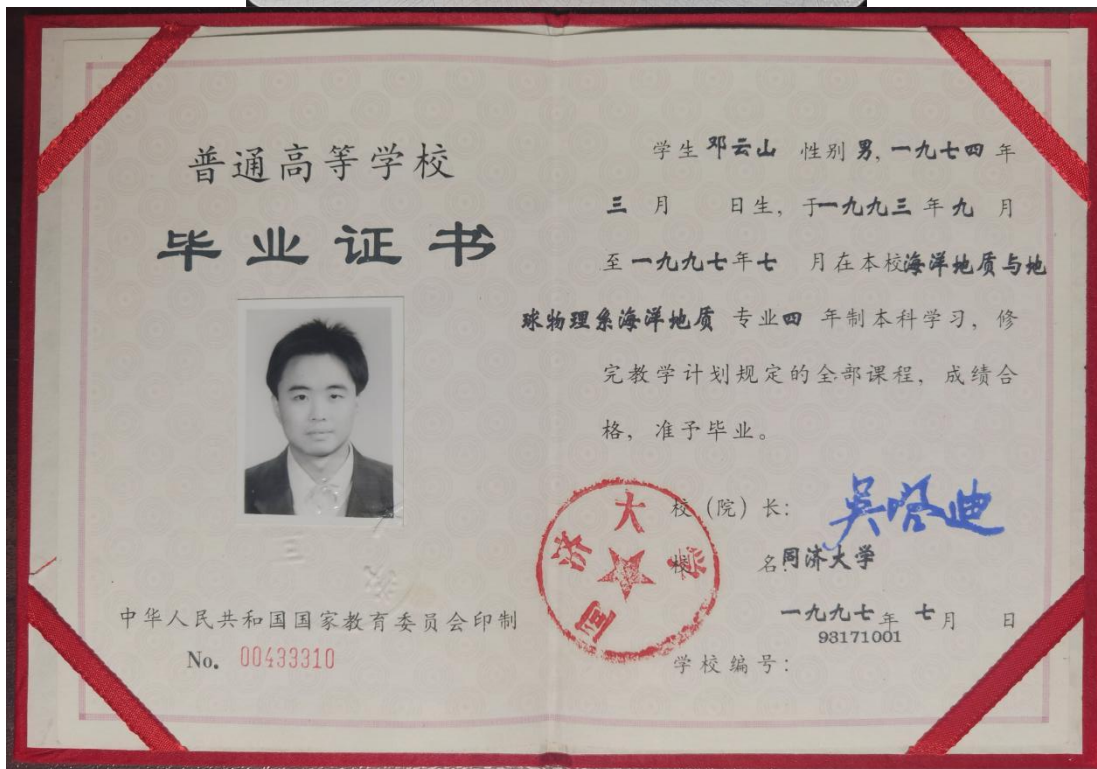 普通高等学校
毕业证书
中华人民共和国国家教育委员会印制
No. 00433310
学生 邓云山 性别 男, 一九七四 年
三 月 日生, 于一九九三 年 九 月
至 一九九七 年 七 月在本校海洋地质与地
球物理系海洋地质 专业四 年制本科学习, 修
完教学计划规定的全部课程, 成绩合
格, 准予毕业。
校(院)长: 吴启迪
校 名: 同济大学
同济大学
一九九七 年 七 月 日
93171001
学校编号: